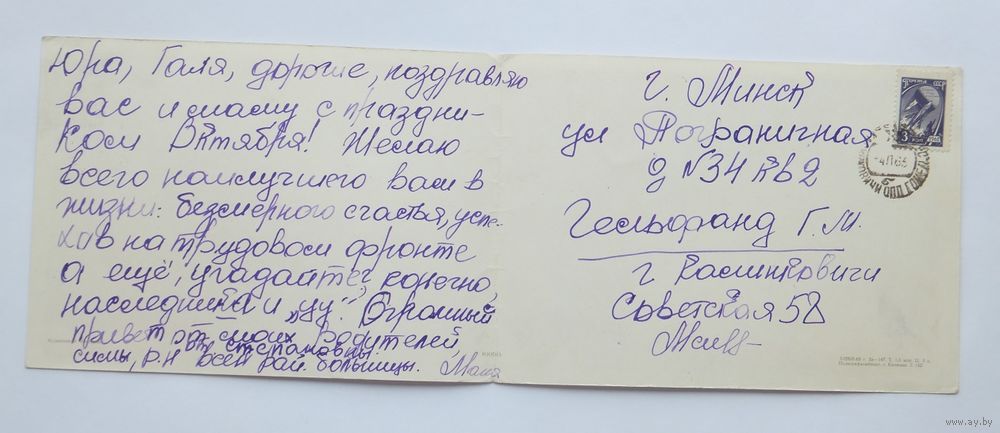 Юра, Галя, дорогие, поздравляю
вас и маму с праздни-
ком Октября! Желаю
всего наилучшего вам в
жизни: безмерного счастья, успе-
хов на трудовом фронте
а ещё, угадайте, конечно,
наследника и „цу". Огромный
привет от моих родителей,
степановны.
симы, р.н всей рай. больницы. Маля
г. Минск
ул Пограничная
д N34 кв 2
Гельфанд Г. М.
г Калинковичи
Советская 58
ПОЧТА СССР
3
-4 11 65
www.ay.by